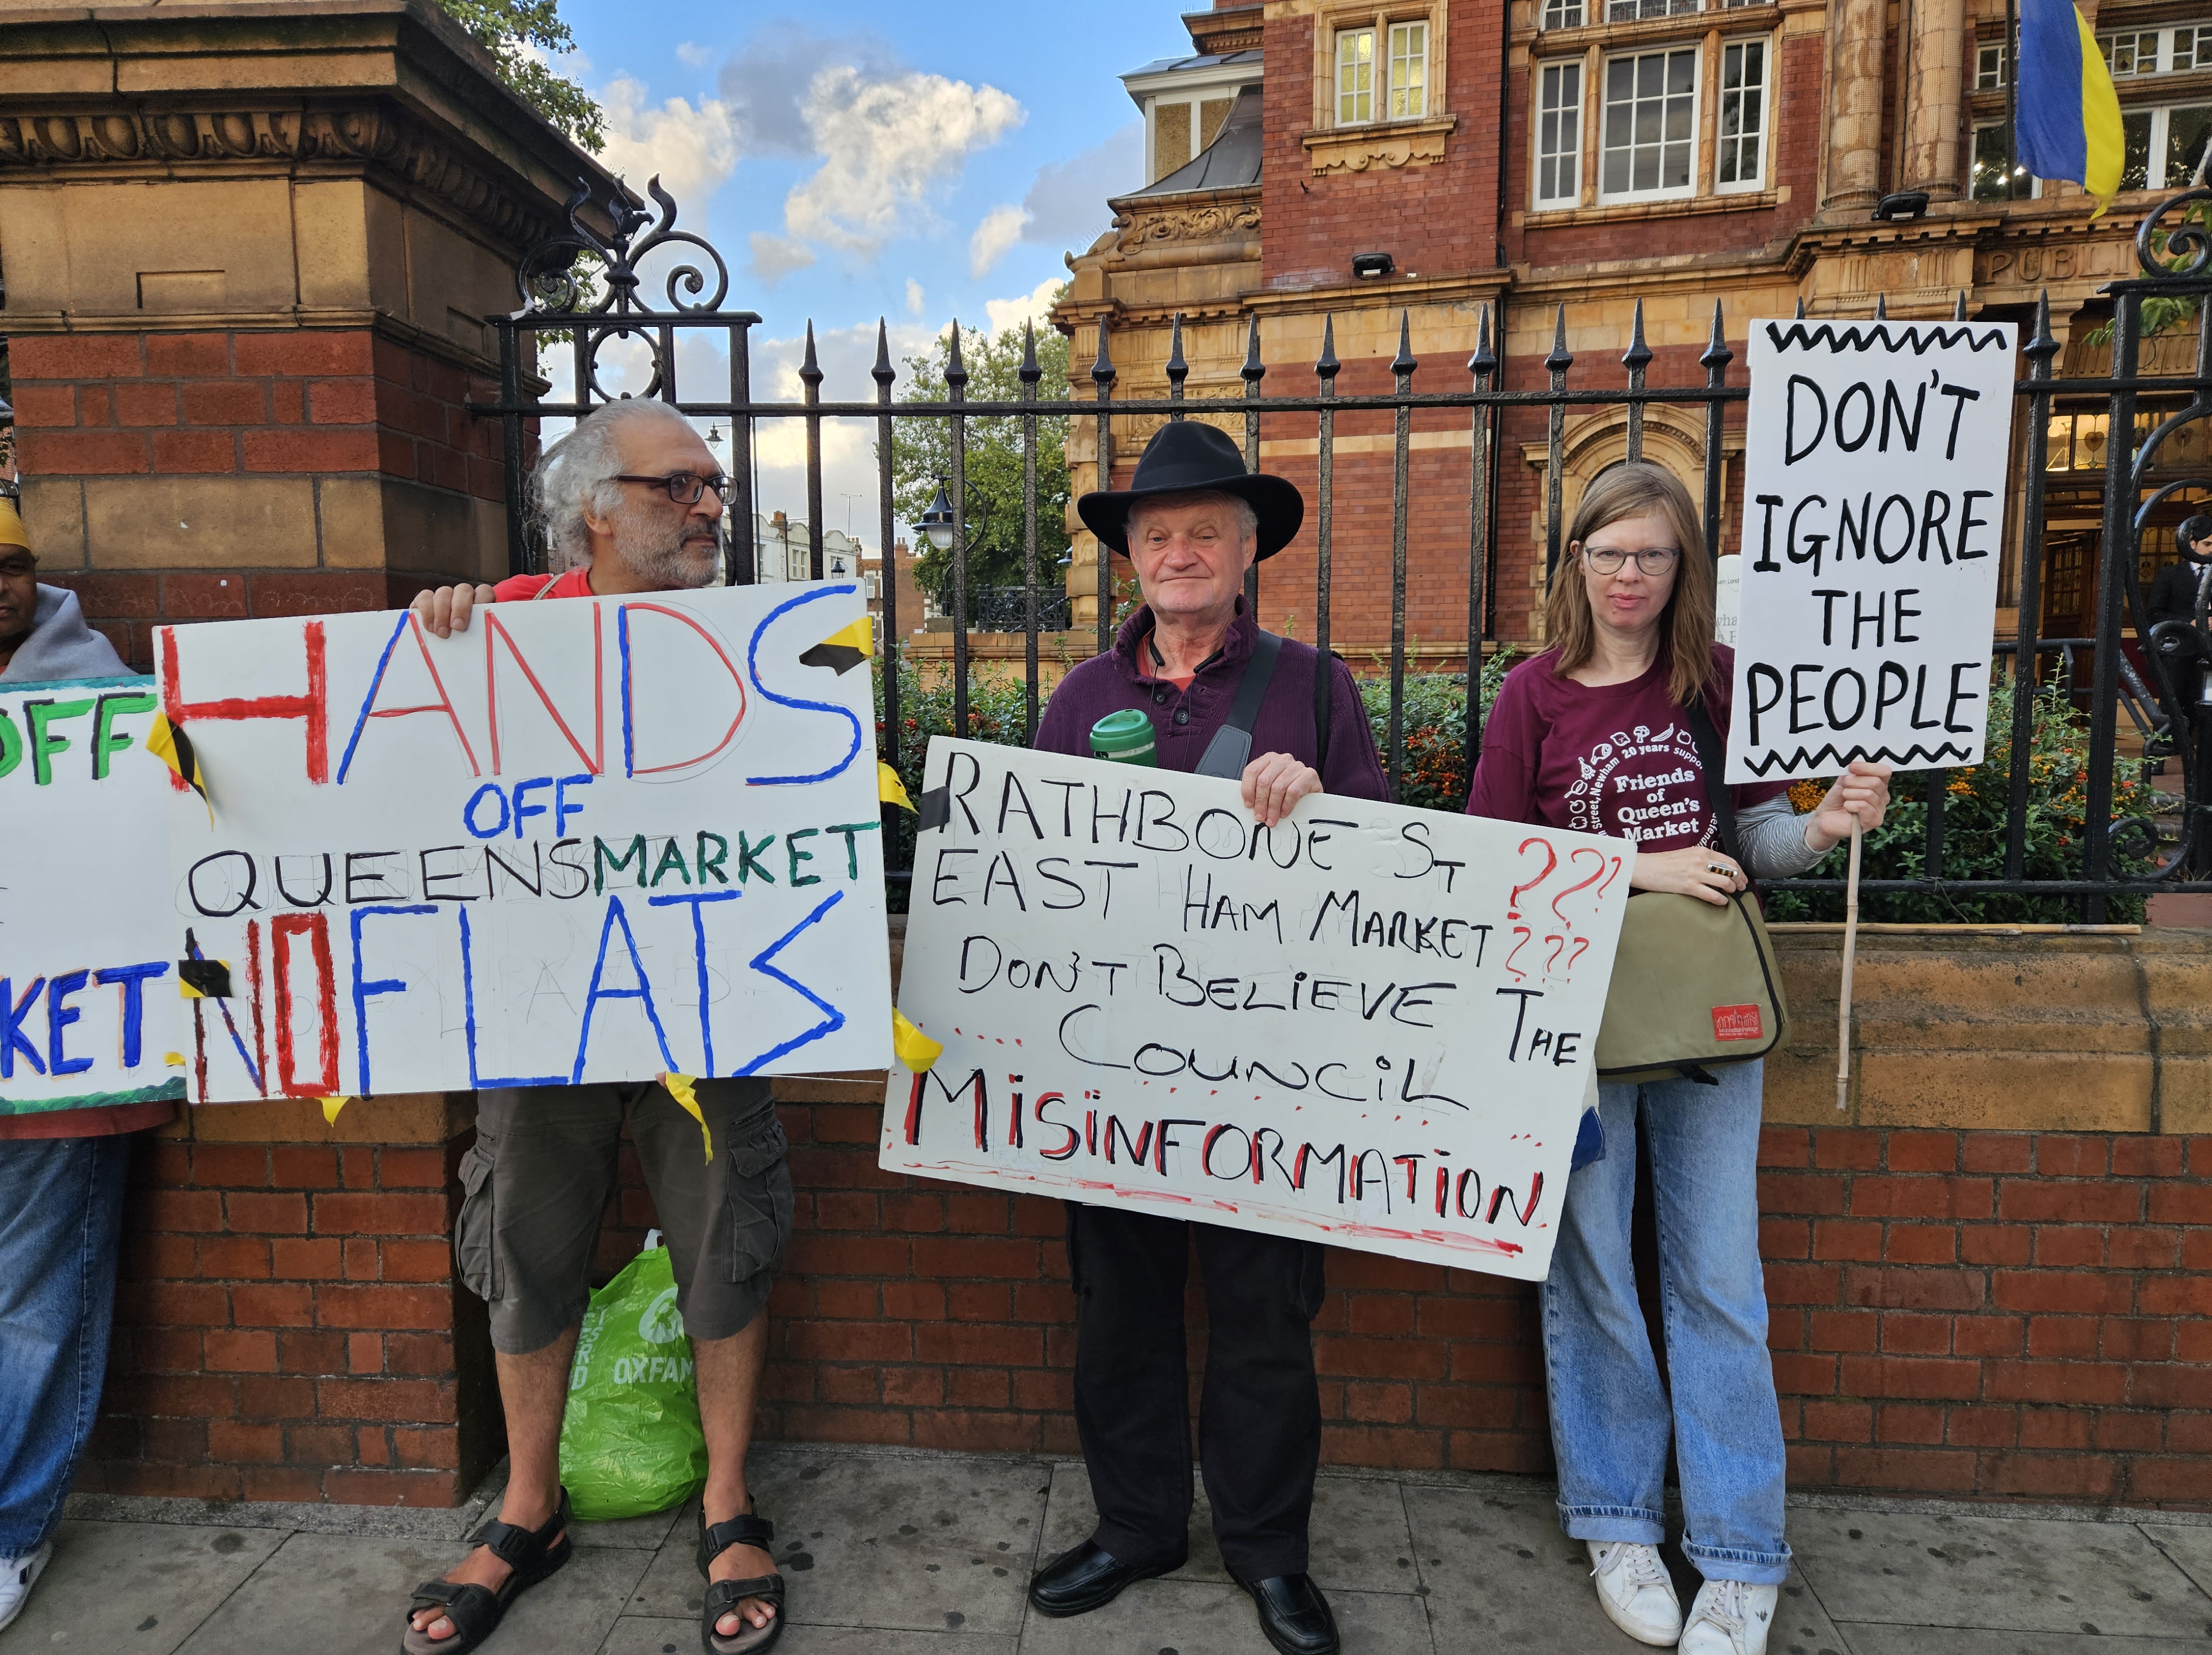 OFF
KET
HANDS
OFF
QUEENSMARKET
NO FLATS
RATHBONE ST ???
EAST HAM MARKET ???
DON'T BELIEVE THE
COUNCIL
MISINFORMATION
DON'T
IGNORE
THE
PEOPLE
20 years
Friends
of
Queen's
Market
Street, Newham
OXFAM
PUBLI